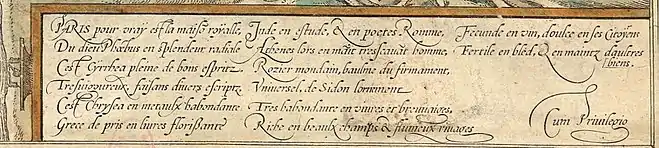 PARIS pour vray est la maiso royalle,
Du dieu Phœbus en splendeur radiale
C'est Cyrrhea pleine de bons espritz
Tresvigoureux, faisans divers escriptz
C'est Chrysea en metaulx habondante
Grece de pris en livres florissante
Jnde en estude, & en poetes Romme,
Athenes lors en maint tresscavāt homme,
Rozier mondain, baulme du firmament,
Vniversel, de Sidon lornement
Tres habondante en vivres et bruvaiges,
Riche en beaulx champs & fluvieux rivages
Fecunde en vin, doulce en ses Citoyens
Fertile en bled, & en maintz daultres
biens.
Cum Privilegio